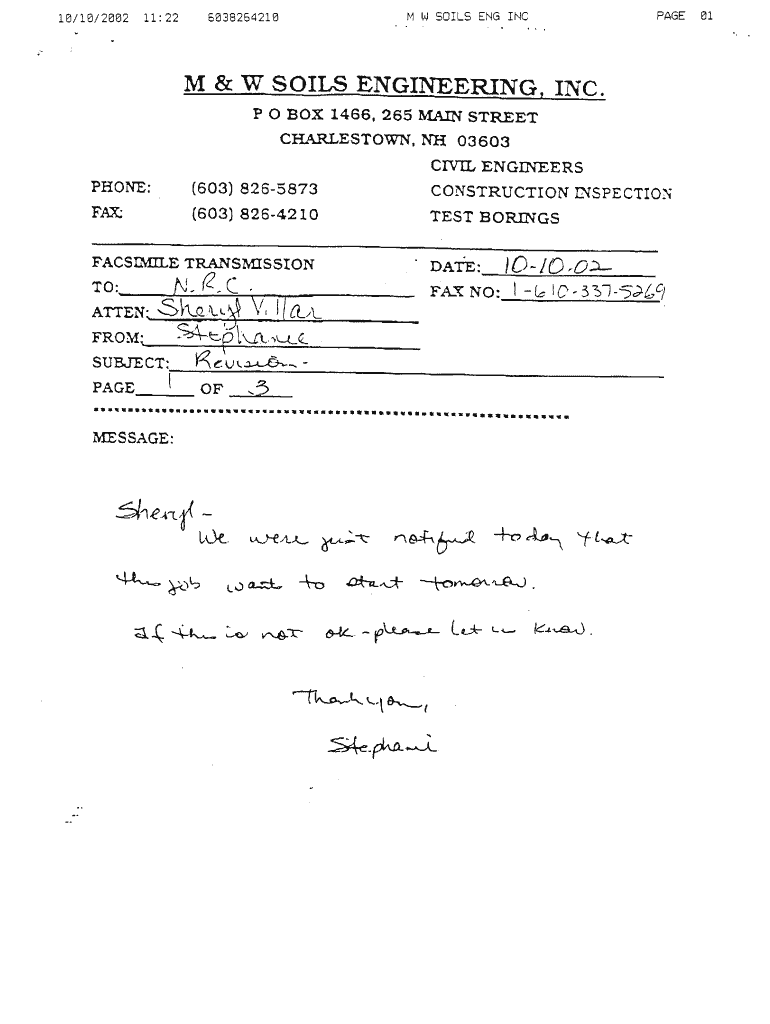 10/10/2002 11:22 6038264210 M W SOILS ENG INC PAGE 01
M & W SOILS ENGINEERING, INC.
P O BOX 1466, 265 MAIN STREET
CHARLESTOWN, NH 03603
CIVIL ENGINEERS
PHONE: (603) 826-5873 CONSTRUCTION INSPECTION
FAX: (603) 826-4210 TEST BORINGS
FACSIMILE TRANSMISSION DATE: 10-10-02
TO: N.R.C. FAX NO: 1-610-337-5269
ATTEN: Sheryl Villar
FROM: Stephanie
SUBJECT: Revision-
PAGE 1 OF 3
MESSAGE:
Sheryl -
We were just notified today that
this job wants to start tomorrow.
If this is not ok - please let us know.
Thank you,
Stephanie